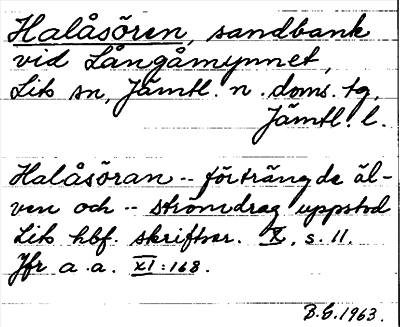 Halåsören, sandbank
vid Långåmynnet,
Lits sn, Jämtl. n. doms. tg,
Jämtl. l.
Halåsöran -- förträngde äl-
ven och -- strömdrag uppstod
Lits hbf. skriftser. X, s. 11.
Jfr a. a. XI: 168.
B.G. 1963.